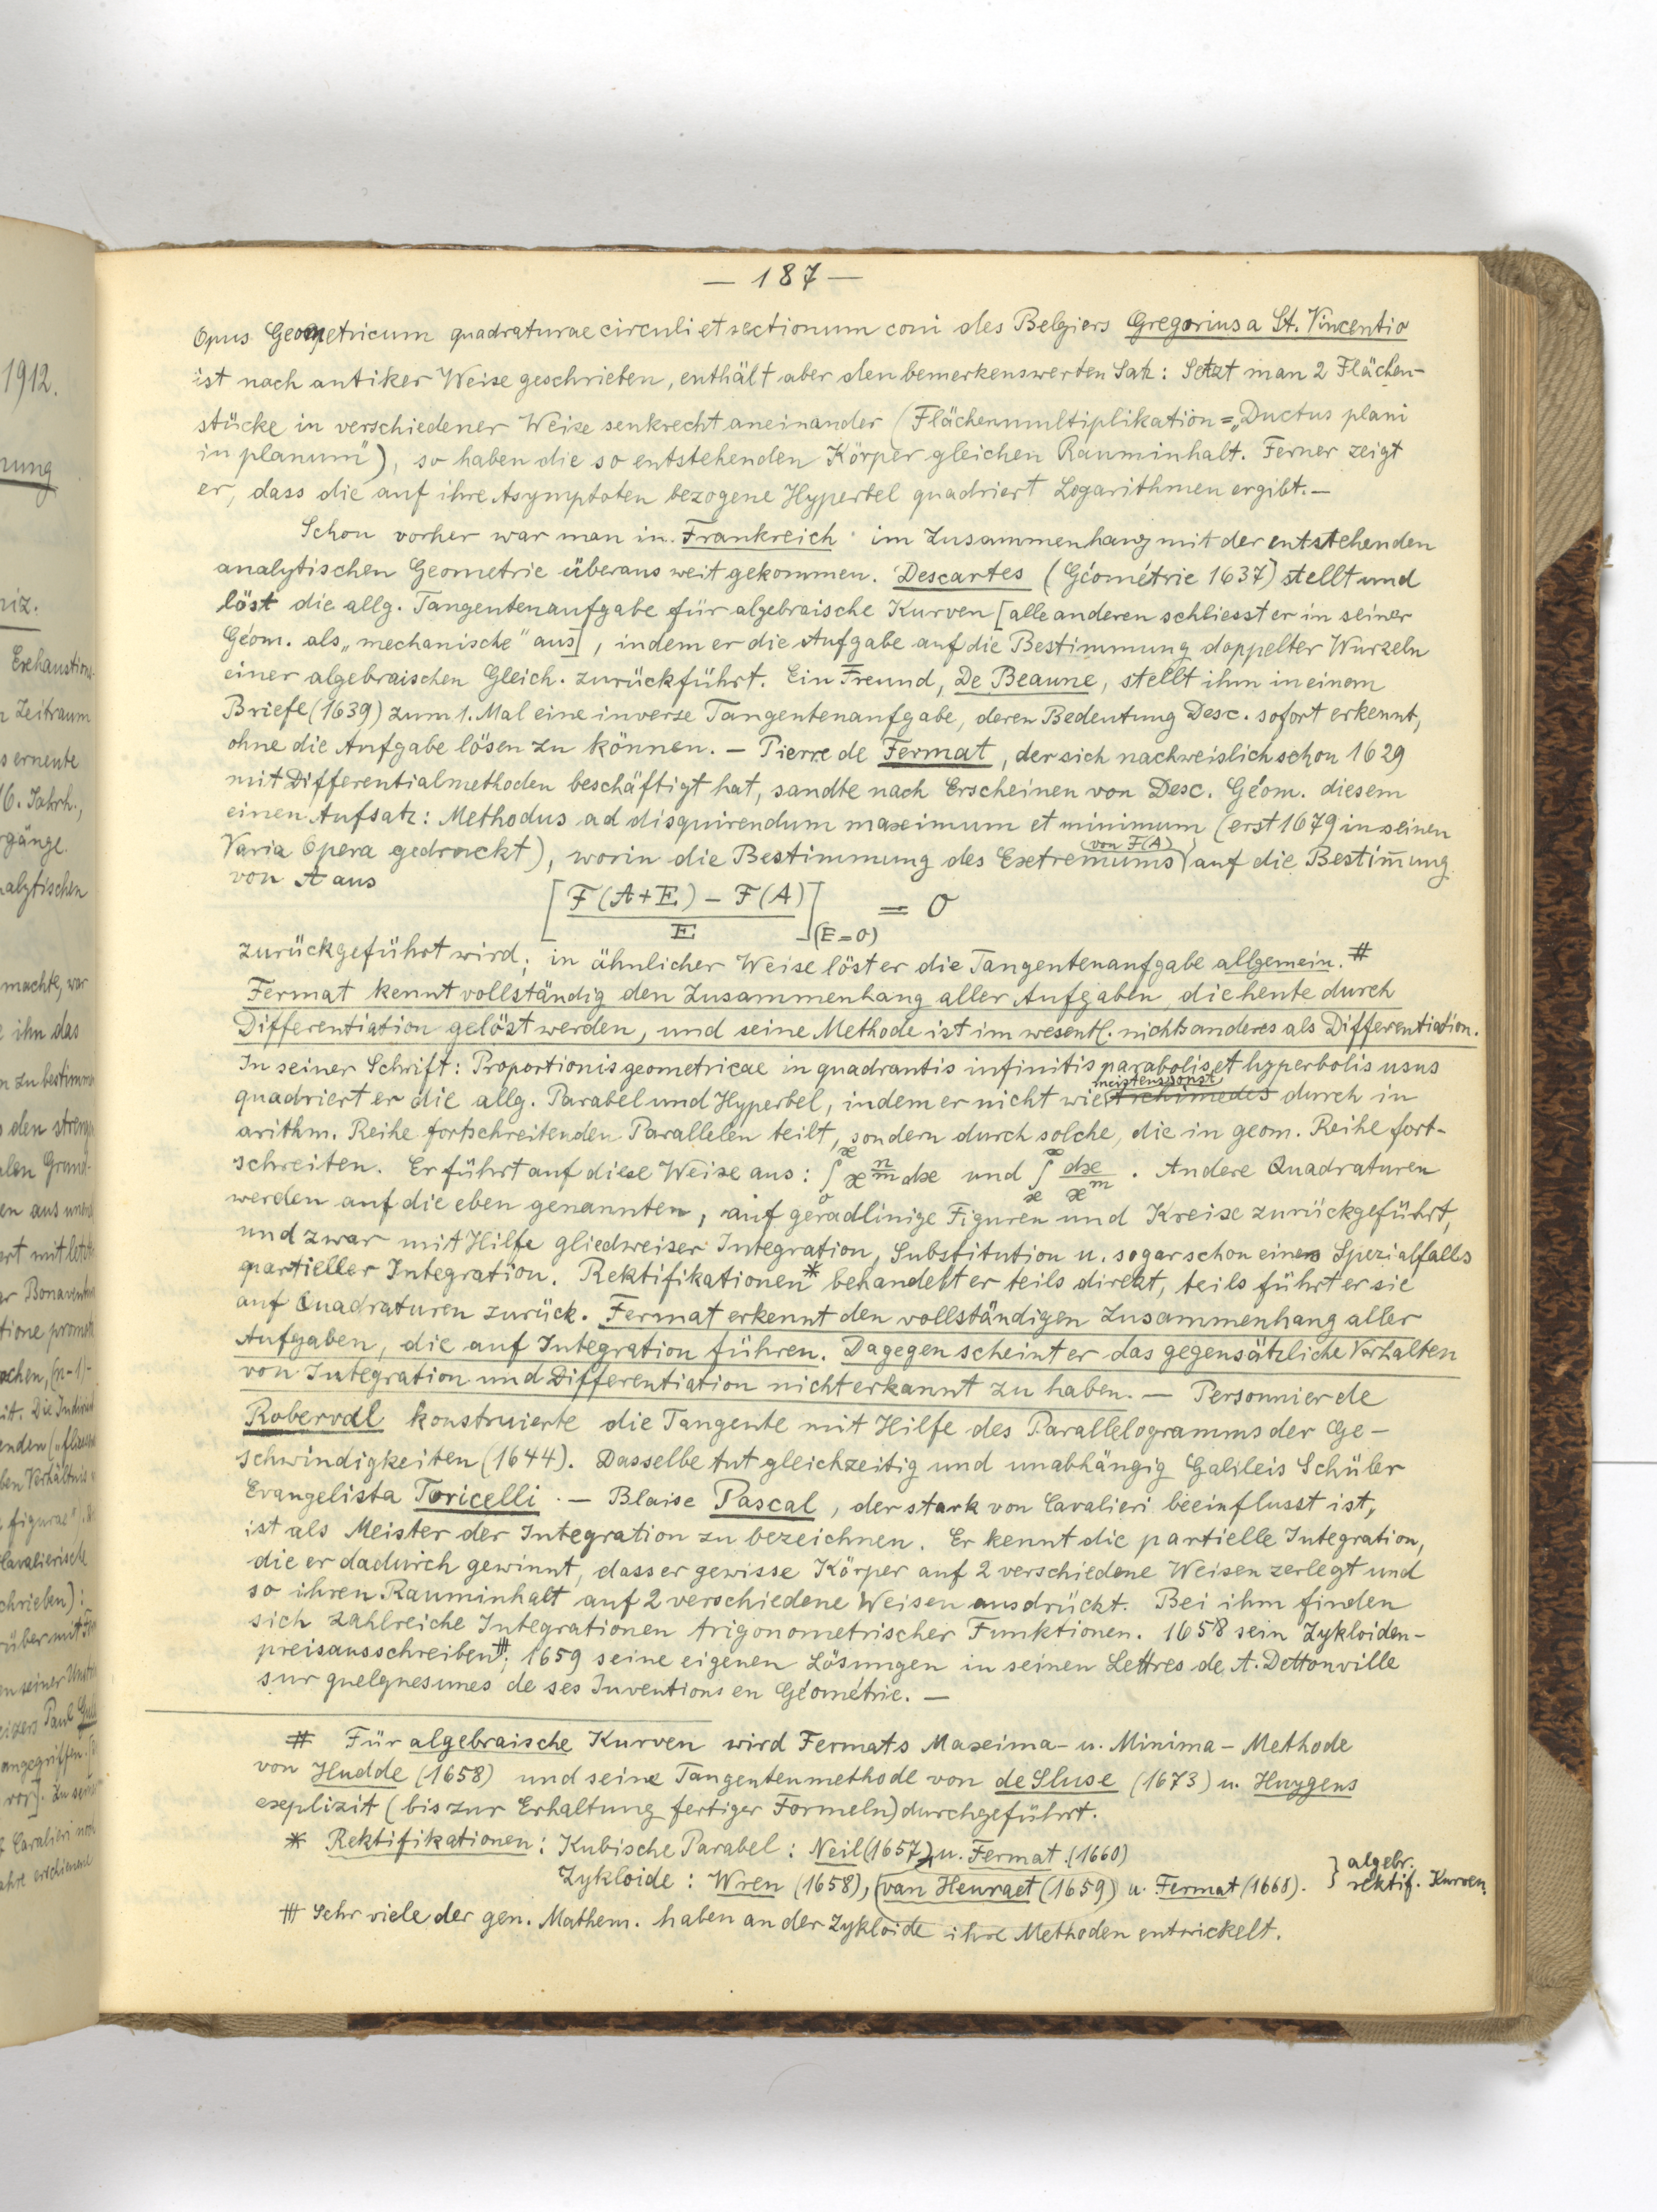 — 187 —
Opus Geometricum quadraturae circuli et sectionum coni des Belgiers Gregorius a St. Vincentio
ist nach antiker Weise geschrieben, enthält aber den bemerkenswerten Satz: Setzt man 2 Flächen-
stücke in verschiedener Weise senkrecht aneinander (Flächenmultiplikation = „Ductus plani
in planum"), so haben die so entstehenden Körper gleichen Rauminhalt. Ferner zeigt
er, dass die auf ihre Asymptoten bezogene Hyperbel quadriert Logarithmen ergibt. —
Schon vorher war man in Frankreich im Zusammenhang mit der entstehenden
analytischen Geometrie überaus weit gekommen. Descartes (Géométrie 1637) stellt und
löst die allg. Tangentenaufgabe für algebraische Kurven [alle anderen schliesst er in seiner
Géom. als „mechanische" aus], indem er die Aufgabe auf die Bestimmung doppelter Wurzeln
einer algebraischen Gleich. zurückführt. Ein Freund, De Beaune, stellt ihm in einem
Briefe (1639) zum 1. Mal eine inverse Tangentenaufgabe, deren Bedeutung Desc. sofort erkennt,
ohne die Aufgabe lösen zu können. — Pierre de Fermat, der sich nachweislich schon 1629
mit Differentialmethoden beschäftigt hat, sandte nach Erscheinen von Desc. Géom. diesem
einen Aufsatz: Methodus ad disquirendum maximum et minimum (erst 1679 in seinen
Varia Opera gedruckt), worin die Bestimmung des Extremums (von F(A)) auf die Bestim̅ung
von A aus
[ F(A+E) – F(A) / E ](E=0) = 0
zurückgeführt wird; in ähnlicher Weise löst er die Tangentenaufgabe allgemein. #
Fermat kennt vollständig den Zusammenhang aller Aufgaben, die heute durch
Differentiation gelöst werden, und seine Methode ist im wesentl. nichts anderes als Differentiation.
In seiner Schrift: Proportionis geometricae in quadrantis infinitis parabolis et hyperbolis usus
quadriert er die allg. Parabel und Hyperbel, indem er nicht wie meistens sonst Archimedes durch in
arithm. Reihe fortschreitenden Parallelen teilt, sondern durch solche, die in geom. Reihe fort-
schreiten. Er führt auf diese Weise aus: ∫₀ˣ x^(n/m) dx und ∫ₓ^∞ dx/x^m. Andere Quadraturen
werden auf die eben genannten, auf geradlinige Figuren und Kreise zurückgeführt,
und zwar mit Hilfe gliedweiser Integration, Substitution u. sogar schon eines Spezialfalls
partieller Integration. Rektifikationen* behandelt er teils direkt, teils führt er sie
auf Quadraturen zurück. Fermat erkennt den vollständigen Zusammenhang aller
Aufgaben, die auf Integration führen. Dagegen scheint er das gegensätzliche Verhalten
von Integration und Differentiation nicht erkannt zu haben. — Personnier de
Roberval konstruierte die Tangente mit Hilfe des Parallelogramms der Ge-
schwindigkeiten (1644). Dasselbe tut gleichzeitig und unabhängig Galileis Schüler
Evangelista Toricelli. — Blaise Pascal, der stark von Cavalieri beeinflusst ist,
ist als Meister der Integration zu bezeichnen. Er kennt die partielle Integration,
die er dadurch gewinnt, dass er gewisse Körper auf 2 verschiedene Weisen zerlegt und
so ihren Rauminhalt auf 2 verschiedene Weisen ausdrückt. Bei ihm finden
sich zahlreiche Integrationen trigonometrischer Funktionen. 1658 sein Zykloiden-
preisausschreiben⧻; 1659 seine eigenen Lösungen in seinen Lettres de A. Dettonville
sur quelques unes de ses Inventions en Géométrie. —
# Für algebraische Kurven wird Fermats Maxima- u. Minima-Methode
von Hudde (1658) und seine Tangentenmethode von de Sluse (1673) u. Huygens
explizit (bis zur Erhaltung fertiger Formeln) durchgeführt.
* Rektifikationen: Kubische Parabel: Neil (1657), u. Fermat (1660)
Zykloide: Wren (1658), (van Heuraet (1659) u. Fermat (1668). } algebr. rektif. Kurven.
⧻ Sehr viele der gen. Mathem. haben an der Zykloide ihre Methoden entwickelt.
1912.
nung
niz.
Exhaustions
Zeitraum
s erneute
16. Jahrh.,
rgänge.
nalytischen
machte, war
ihn das
n zu bestimm
den streng
alen Grund-
en aus
ert mit
er Bonavent
tione promot
ochen, (n-1)-
itt. Die Indivi
enden („fliess
ben Verhältnis
figurae").
Cavalierische
chrieben):
rüber mit
en seiner
eizers Paul Gul
angegriffen.
vor]. Zu sein
Cavalieri noch
ahre erschienene